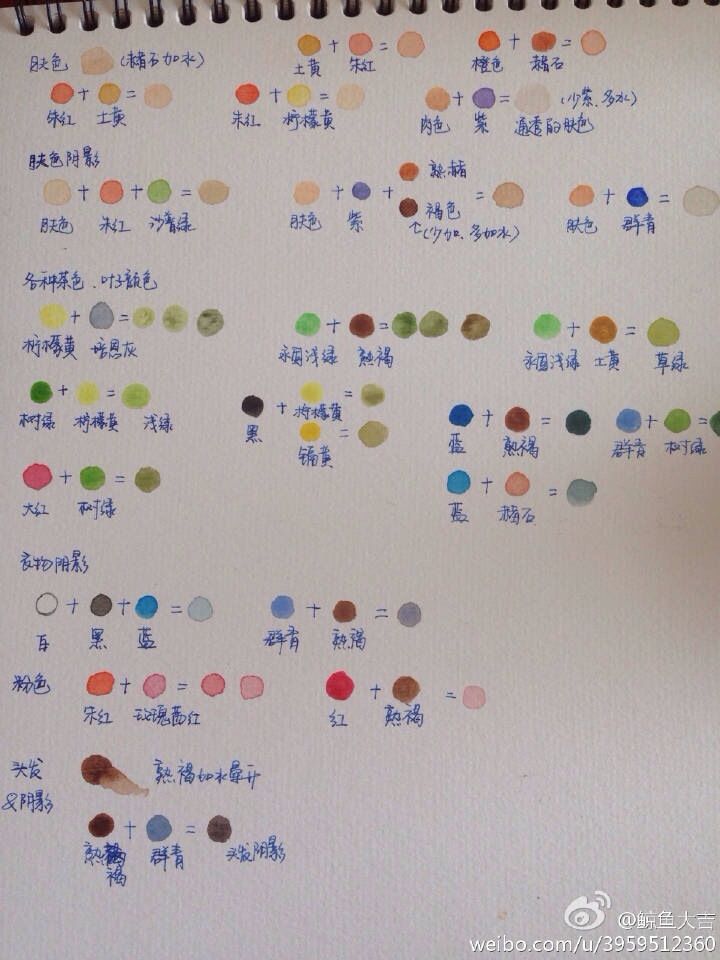 肤色 (赭石加水) 土黄 + 朱红 = 橙色 + 赭石 =
朱红 + 土黄 = 朱红 + 柠檬黄 = 肉色 + 紫 = 通透的肤色 (少紫、多水)
肤色阴影
肤色 + 朱红 + 沙青绿 = 肤色 + 紫 + 熟赭 褐色 = ↑(少加、多加水) 肤色 + 群青 =
各种茶色、叶子颜色
柠檬黄 + 培恩灰 = 永固浅绿 + 熟褐 = 永固浅绿 + 土黄 = 草绿
树绿 + 柠檬黄 = 浅绿 黑 + 柠檬黄 = 镉黄 = 蓝 + 熟褐 = 群青 + 树绿 =
大红 + 树绿 = 蓝 + 赭石 =
衣物阴影
白 + 黑 + 蓝 = 群青 + 熟褐 =
粉色 朱红 + 玫瑰茜红 = 红 + 熟褐 =
头发 熟褐加水晕开
&阴影
熟褐 + 群青 = 头发阴影
@鲸鱼大吉
weibo.com/u/3959512360